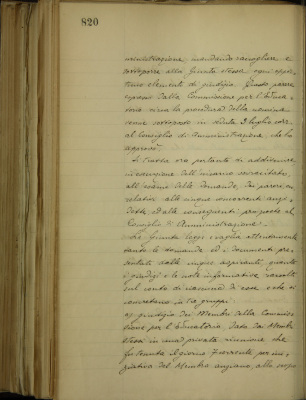 820
ministrazione, mandando raccogliere e
sottoporre alla Giunta stessa ogni oppor-
tuno elemento di giudizio. Questo parere
espresso dalla Commissione per l'Educa-
toria circa la procedura della nomina
venne sottoposto in seduta 3 luglio
al Consiglio di Amministrazione, che lo
approvò.
Si tratta ora pertanto di addivenire
in esecuzione dell'incarico
all'esame delle domande, dei pareri
relativi alle cinque concorrenti anzi-
dette, ed alle conseguenti proposte al
Consiglio di Amministrazione.
La Giunta legge e vaglia attentamente
tanto le domande ed i documenti pre-
sentati dalle cinque aspiranti, quanto
i giudizi e le note informative raccolte
sul conto di ciascuna di esse e che si
concretano in tre gruppi:
a) giudizio dei Membri della Commis-
sione per l'Educatoria, dato dai Membri
stessi in una privata riunione che
fu tenuta il giorno 7 corrente per ini-
ziativa del Membro anziano, allo scopo